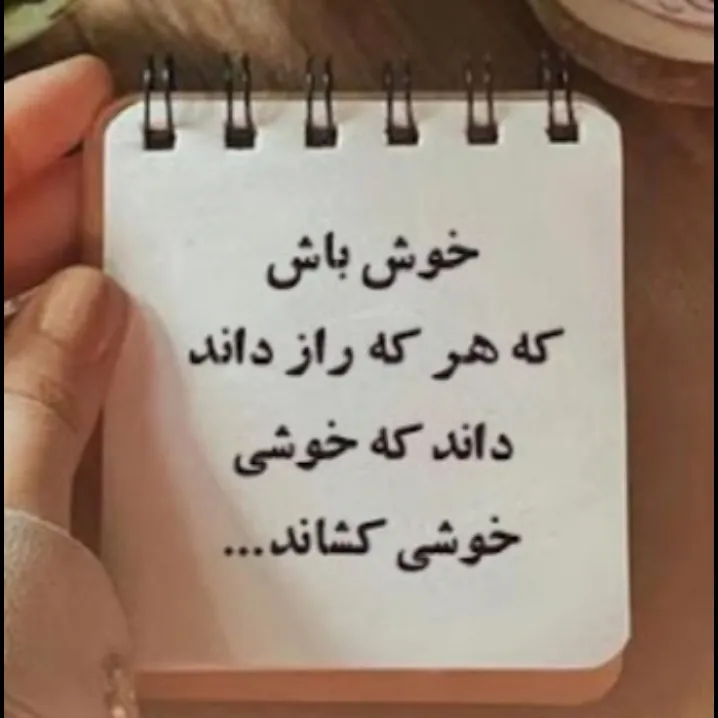 خوش باش
که هر که راز داند
داند که خوشی
خوشی کشاند...